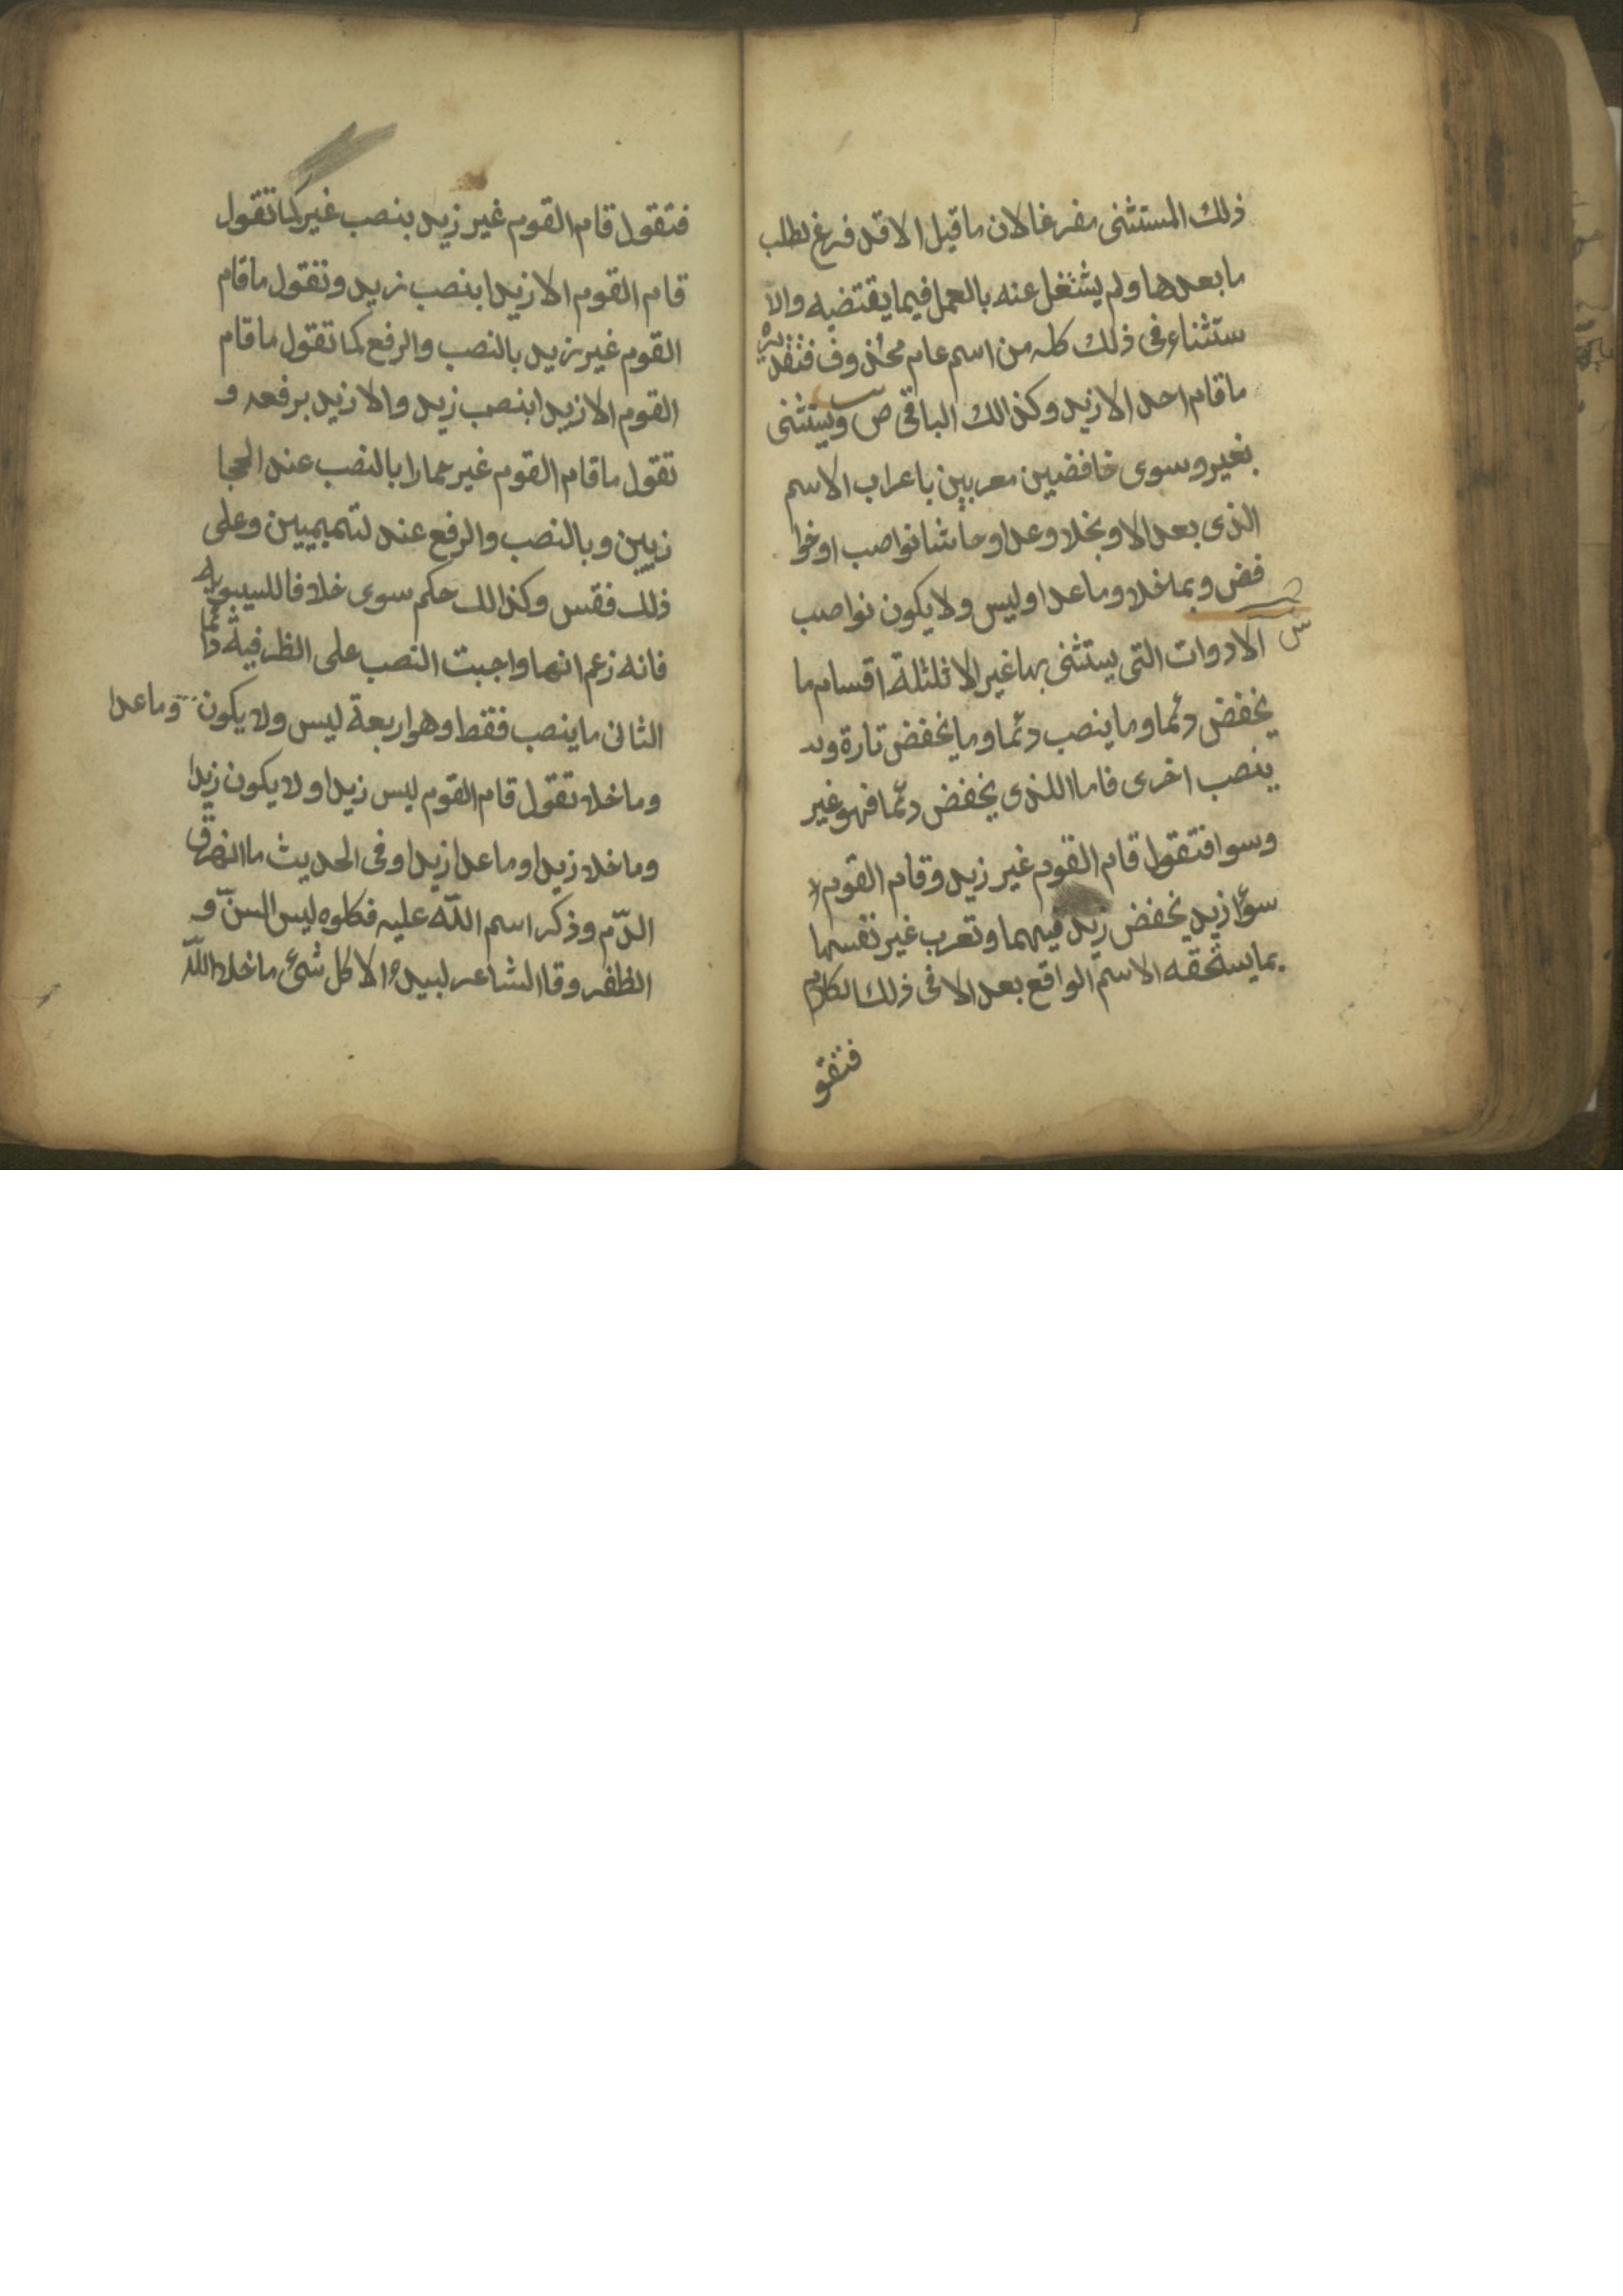 ذلك المستثنى مفرغا لان ما قبل الا قد فرغ لطلب
ما بعدها ولم يشتغل عنه بالعمل فيما يقتضيه والا
ستثناء فى ذلك كله من اسم عام محذوف فتقديره
ما قام احد الا زيد وكذالك الباقى ص ويستثنى
بغير وسوى خافضين معربين باعراب الاسم
الذى بعد الا وبخلا وعدا وحاشا نواصب او خوا
فض وبما خلا وما عدا وليس ولا يكون نواصب
ش الادوات التى يستثنى بها غير الا ثلثلة اقسام ما
يخفض دئما وما ينصب دئما وما يخفض تارة و
ينصب اخرى فاما اللذى يخفض دئما فهو غير
وسوا فتقول قام القوم غير زيد وقام القوم
سوا زيد يخفض زيد فيهما وتعرب غير نفسها
بما يستحقه الاسم الواقع بعد الا فى ذلك الكلام
فتقو
فتقول قام القوم غير زيد بنصب غير كما تقول
قام القوم الا زيدا بنصب زيد وتقول ما قام
القوم غير زيد بالنصب والرفع كما تقول ما قام
القوم الا زيدا بنصب زيد والا زيد برفعه و
تقول ما قام القوم غير حمارا بالنصب عند الحجا
زيين وبالنصب والرفع عند لتميميين وعلى
ذلك فقس وكذالك حكم سوى خلافا للسيبويه
فانه زعم انها واجبت النصب على الظرفية دائما
الثانى ما ينصب فقط وهو اربعة ليس ولا يكون وما عدا
وما خلا تقول قام القوم ليس زيدا ولا يكون زيدا
وما خلا زيدا وما عدا زيدا وفى الحديث ما انهرق
الدّم وذكر اسم اللّه عليه فكلوه ليس السنّ و
الظفر وقا الشاعر لبيد الا كل شئ ما خلا اللّه